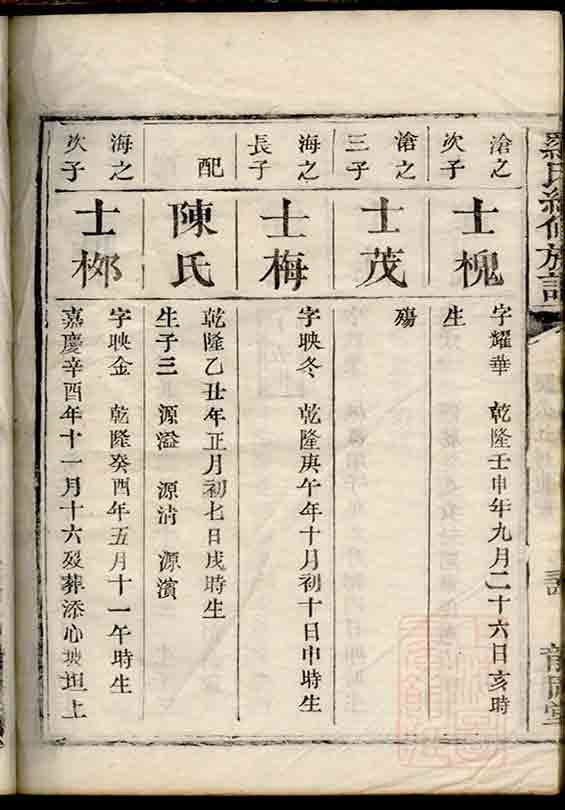 羅氏續修族譜
滄之次子
士槐
字耀華 乾隆壬申年九月二十六日亥時
生
滄之三子
士茂
殤
海之長子
士梅
字映冬 乾隆庚午年十月初十日申時生
配
陳氏
乾隆乙丑年正月初七日戌時生
生子三 源溢 源清 源濱
海之次子
士梛
字映金 乾隆癸酉年五月十一午時生
嘉慶辛酉年十一月十六歿葬添心坡坦上